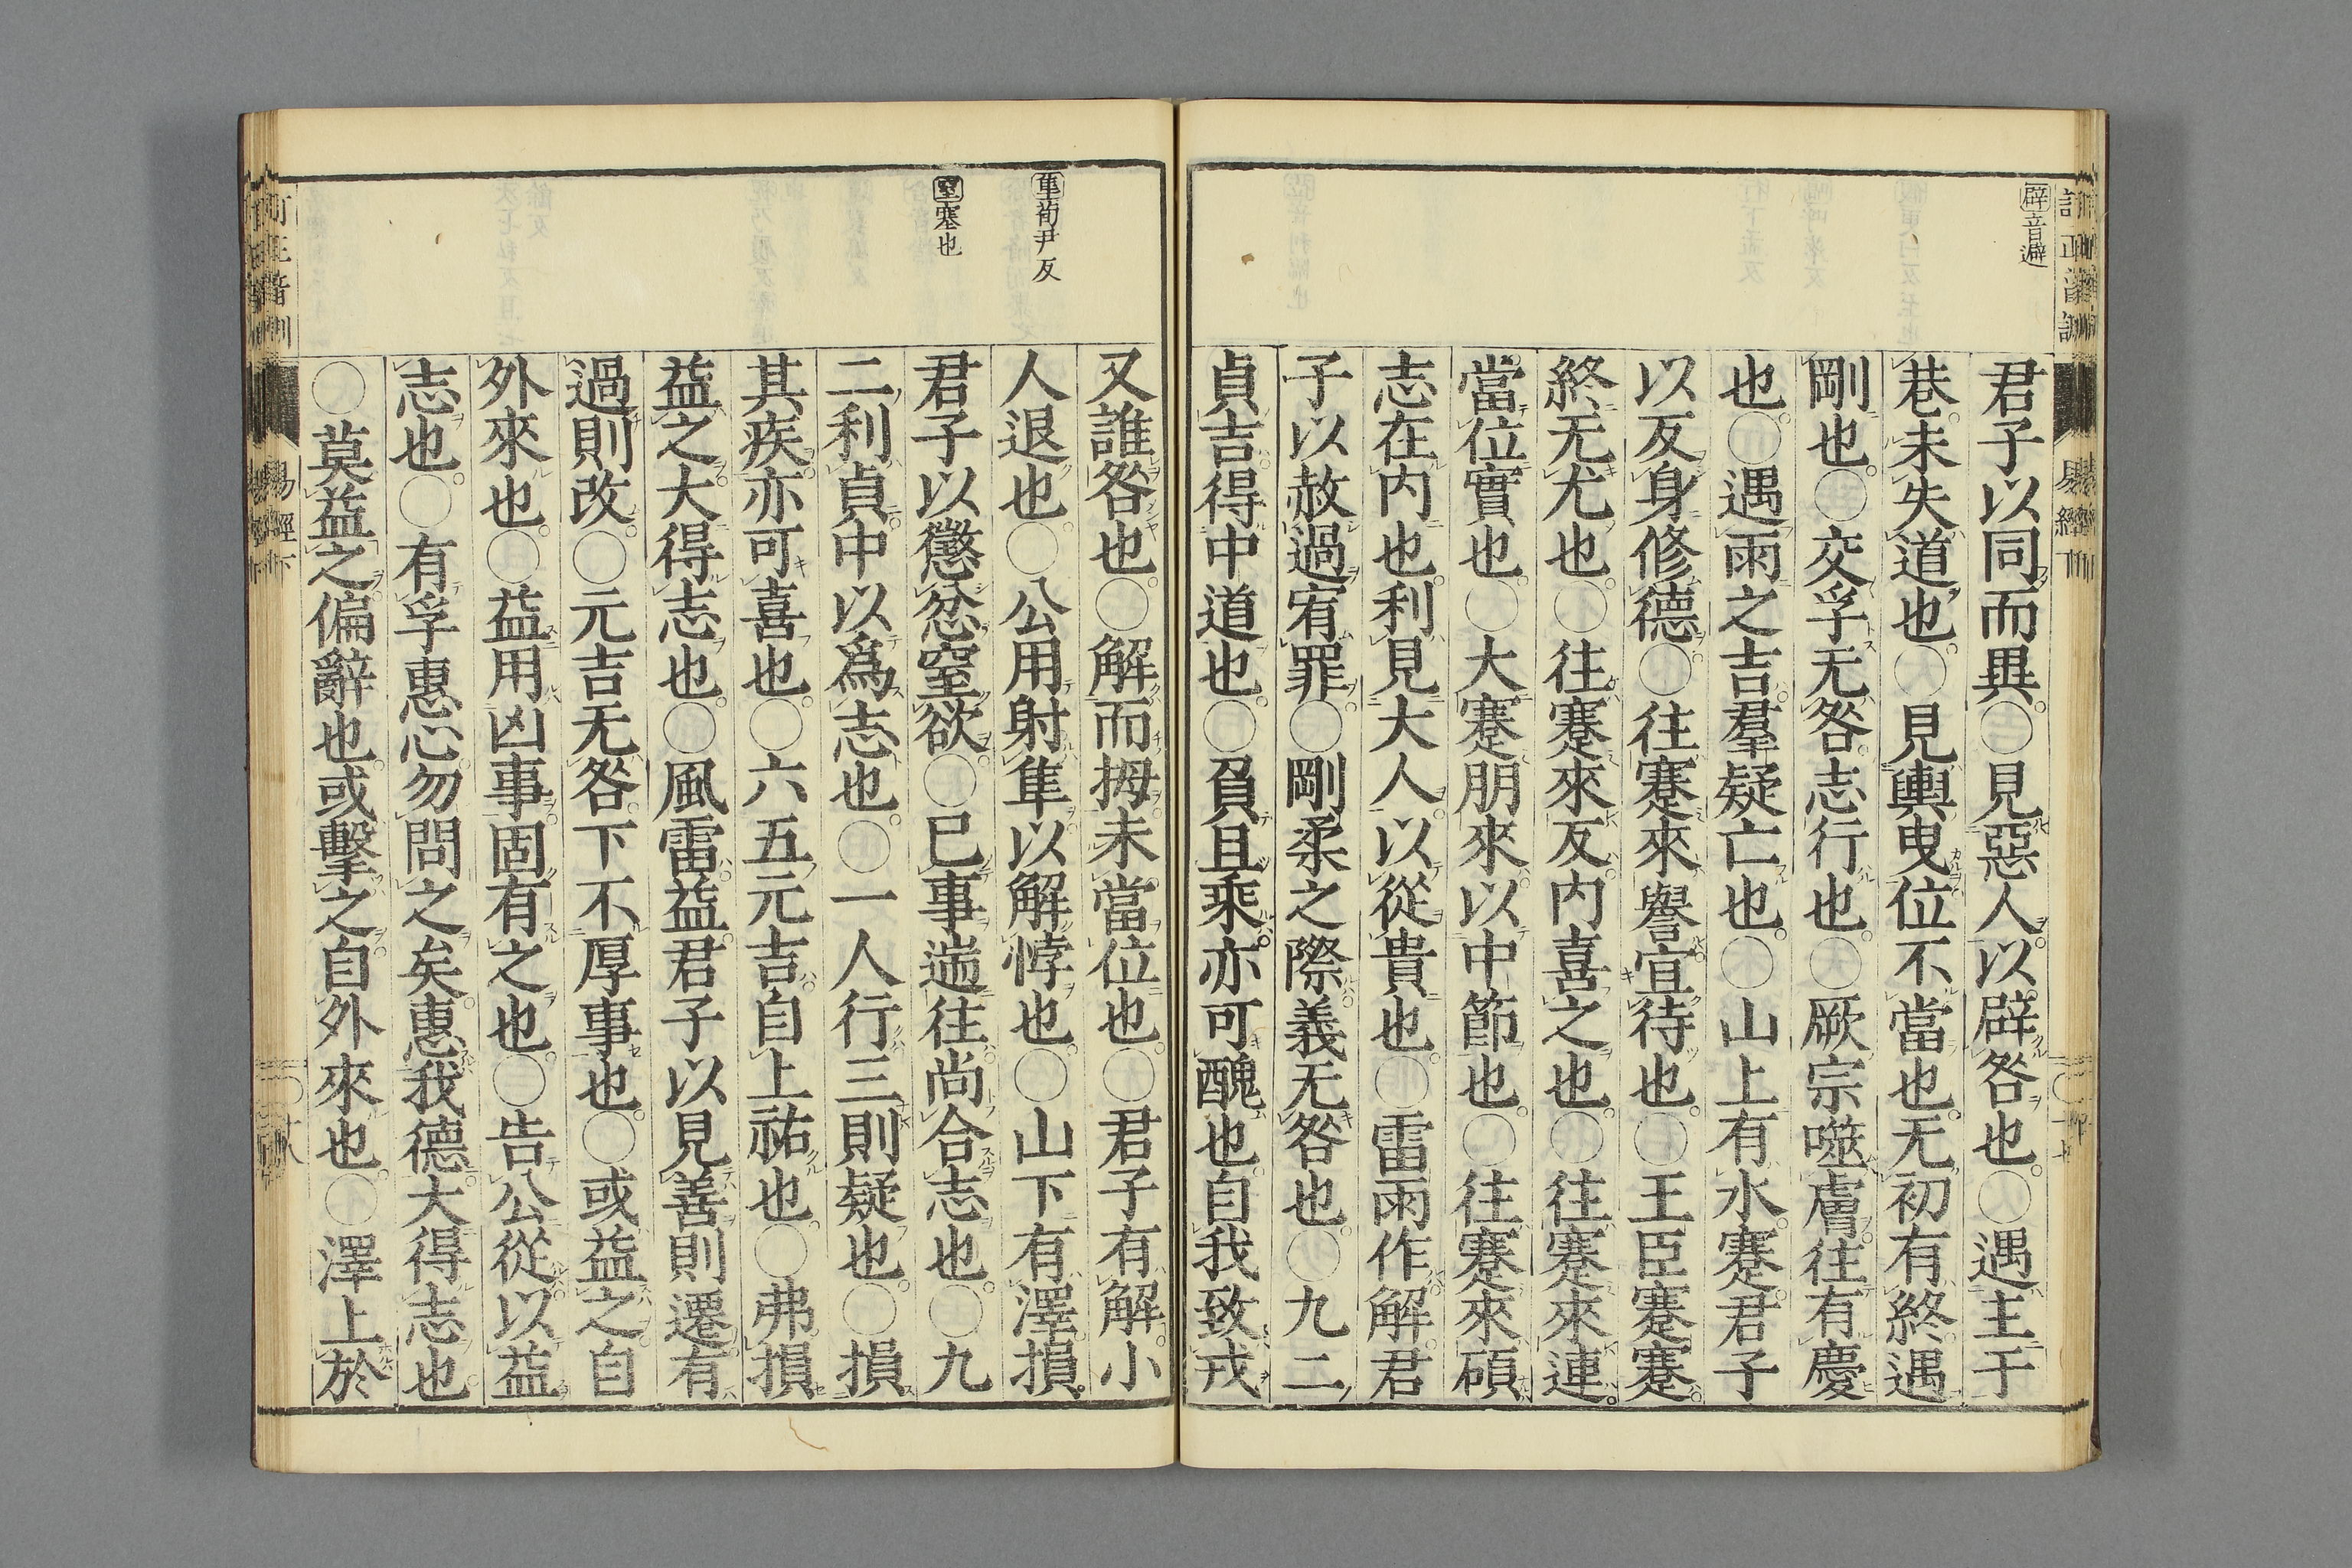 辟音避
君子以同而異○見惡人以辟咎也○遇主于
巷未失道也○見輿曳位不當也无初有終遇
剛也○交孚无咎志行也○厥宗噬膚往有慶
也○遇雨之吉羣疑亡也○山上有水蹇君子
以反身修德○往蹇來譽宜待也○王臣蹇蹇
終无尤也○往蹇來反内喜之也○往蹇來連
當位實也○大蹇朋來以中節也○往蹇來碩
志在内也利見大人以從貴也○雷雨作解君
子以赦過宥罪○剛柔之際義无咎也○九二
貞吉得中道也○負且乘亦可醜也自我致戎
隼荀尹反
窒塞也
又誰咎也○解而拇未當位也○君子有解小
人退也○公用射隼以解悖也○山下有澤損
君子以懲忿窒欲○巳事遄往尚合志也○九
二利貞中以爲志也○一人行三則疑也○損
其疾亦可喜也○六五元吉自上祐也○弗損
益之大得志也○風雷益君子以見善則遷有
過則改○元吉无咎下不厚事也○或益之自
外來也○益用凶事固有之也○告公從以益
志也○有孚惠心勿問之矣惠我德大得志也
○莫益之偏辭也或擊之自外來也○澤上於